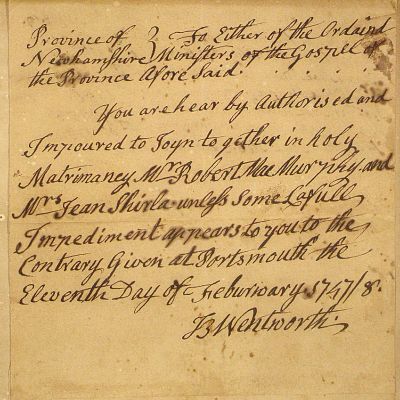 Province of } To Either of the Ordaind
Newhampshire } Ministers of the Gospel of
the Province Afore Said.
You are hear by Authorised and
Impoured to Joyn to gether in holy
Matrimaney Mr. Robert MacMurphy and
Mrs. Jean Shirla unless Some Lafull
Impediment appears to you to the
Contrary Given at Portsmouth the
Eleventh Day of Feburwary 1747/8.
B Wentworth